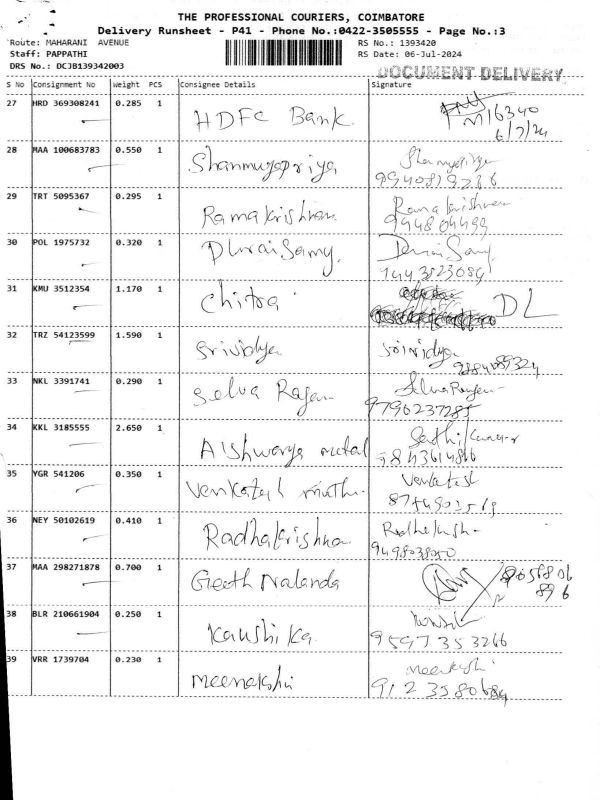 THE PROFESSIONAL COURIERS, COIMBATORE
Delivery Runsheet - P41 - Phone No.:0422-3505555 - Page No.:3
Route: MAHARANI AVENUE
Staff: PAPPATHI
DRS No.: DCJB139342003
RS No.: 1393420
RS Date: 06-Jul-2024
DOCUMENT DELIVERY
S No Consignment No Weight PCS Consignee Details Signature
27 HRD 369308241 0.285 1 HDFC Bank M16340
6/7/24
28 MAA 100683783 0.550 1 Shanmugapriya
29 TRT 5095367 0.295 1 Ramakrishnan Ramakrishnan
30 POL 1975732 0.320 1 DuraiSamy. Durai Samy
31 KMU 3512354 1.170 1 Chitra DL
32 TRZ 54123599 1.590 1 Srividya Srividya
33 NKL 3391741 0.290 1 Selva Rajan
9796237285
34 KKL 3185555 2.650 1 Aishwarya metal
9843614866
35 YGR 541206 0.350 1 Venkatesh muthu. Venkatesh
36 NEY 50102619 0.410 1 Radhakrishna
37 MAA 298271878 0.700 1 Geeth Nalanda
896
38 BLR 210661904 0.250 1 Kaushika
9597353266
39 VRR 1739704 0.230 1 meenakshi meenakshi